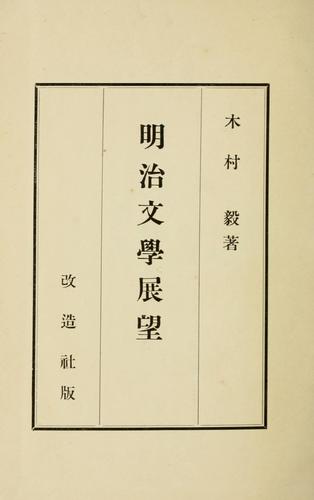 木村 毅著
明治文學展望
改造社版